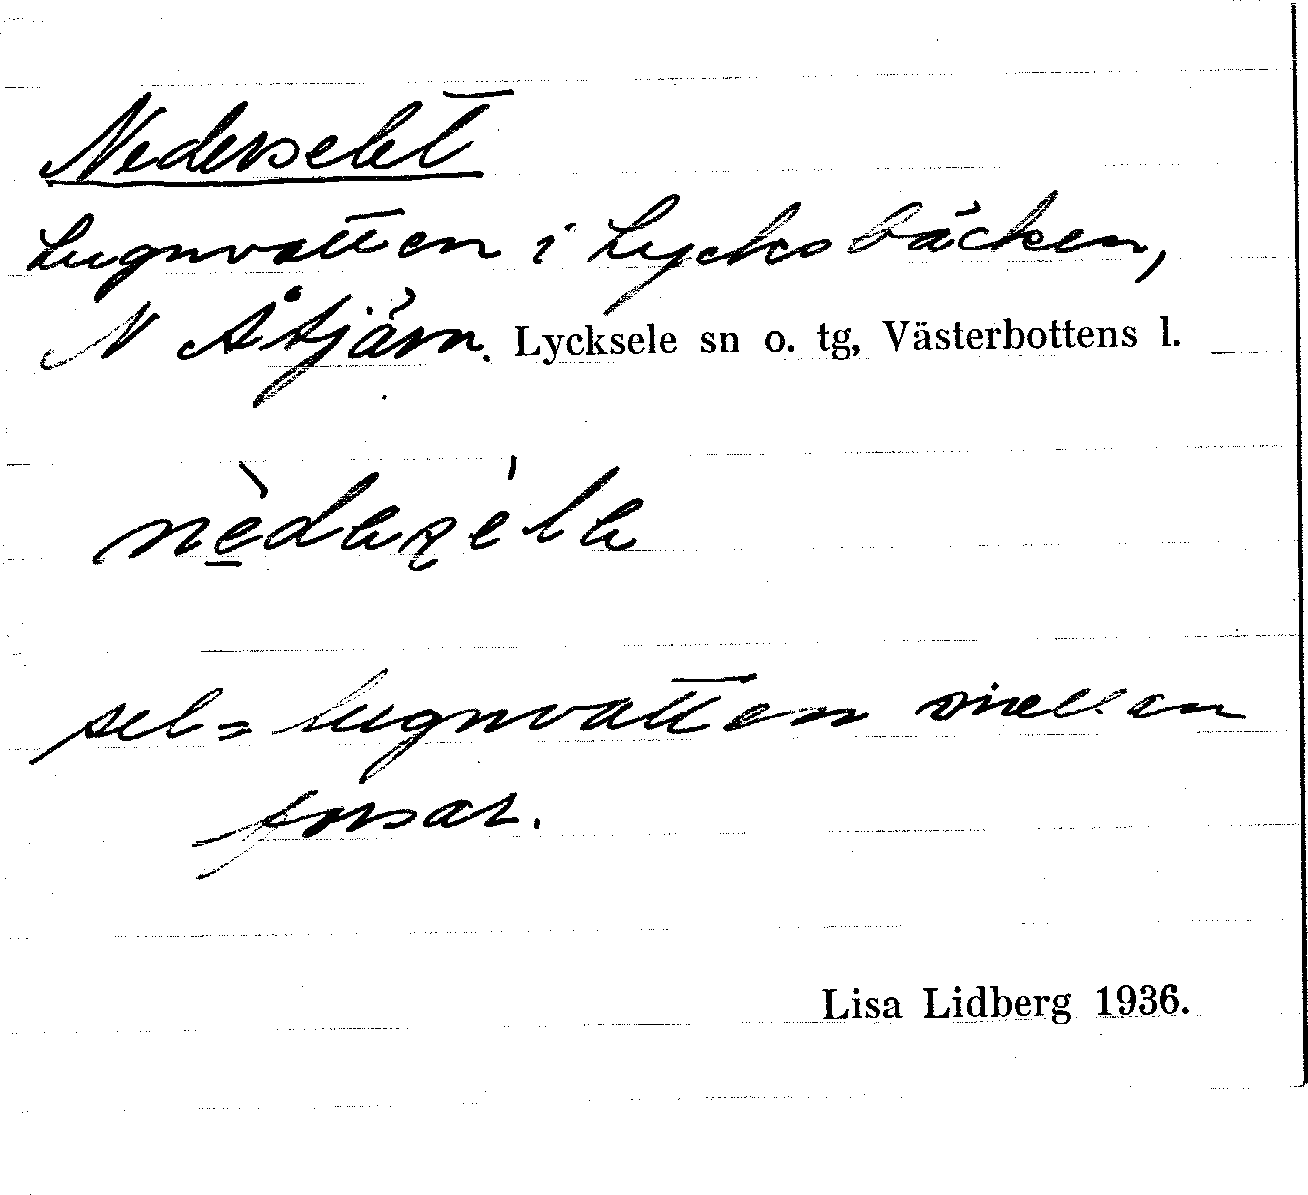 Nederselet
Lugnvatten i Lycksbäcken,
N Åtjärn. Lycksele sn o. tg, Västerbottens l.
sel = lugnvatten mellan
forsar.
Lisa Lidberg 1936.